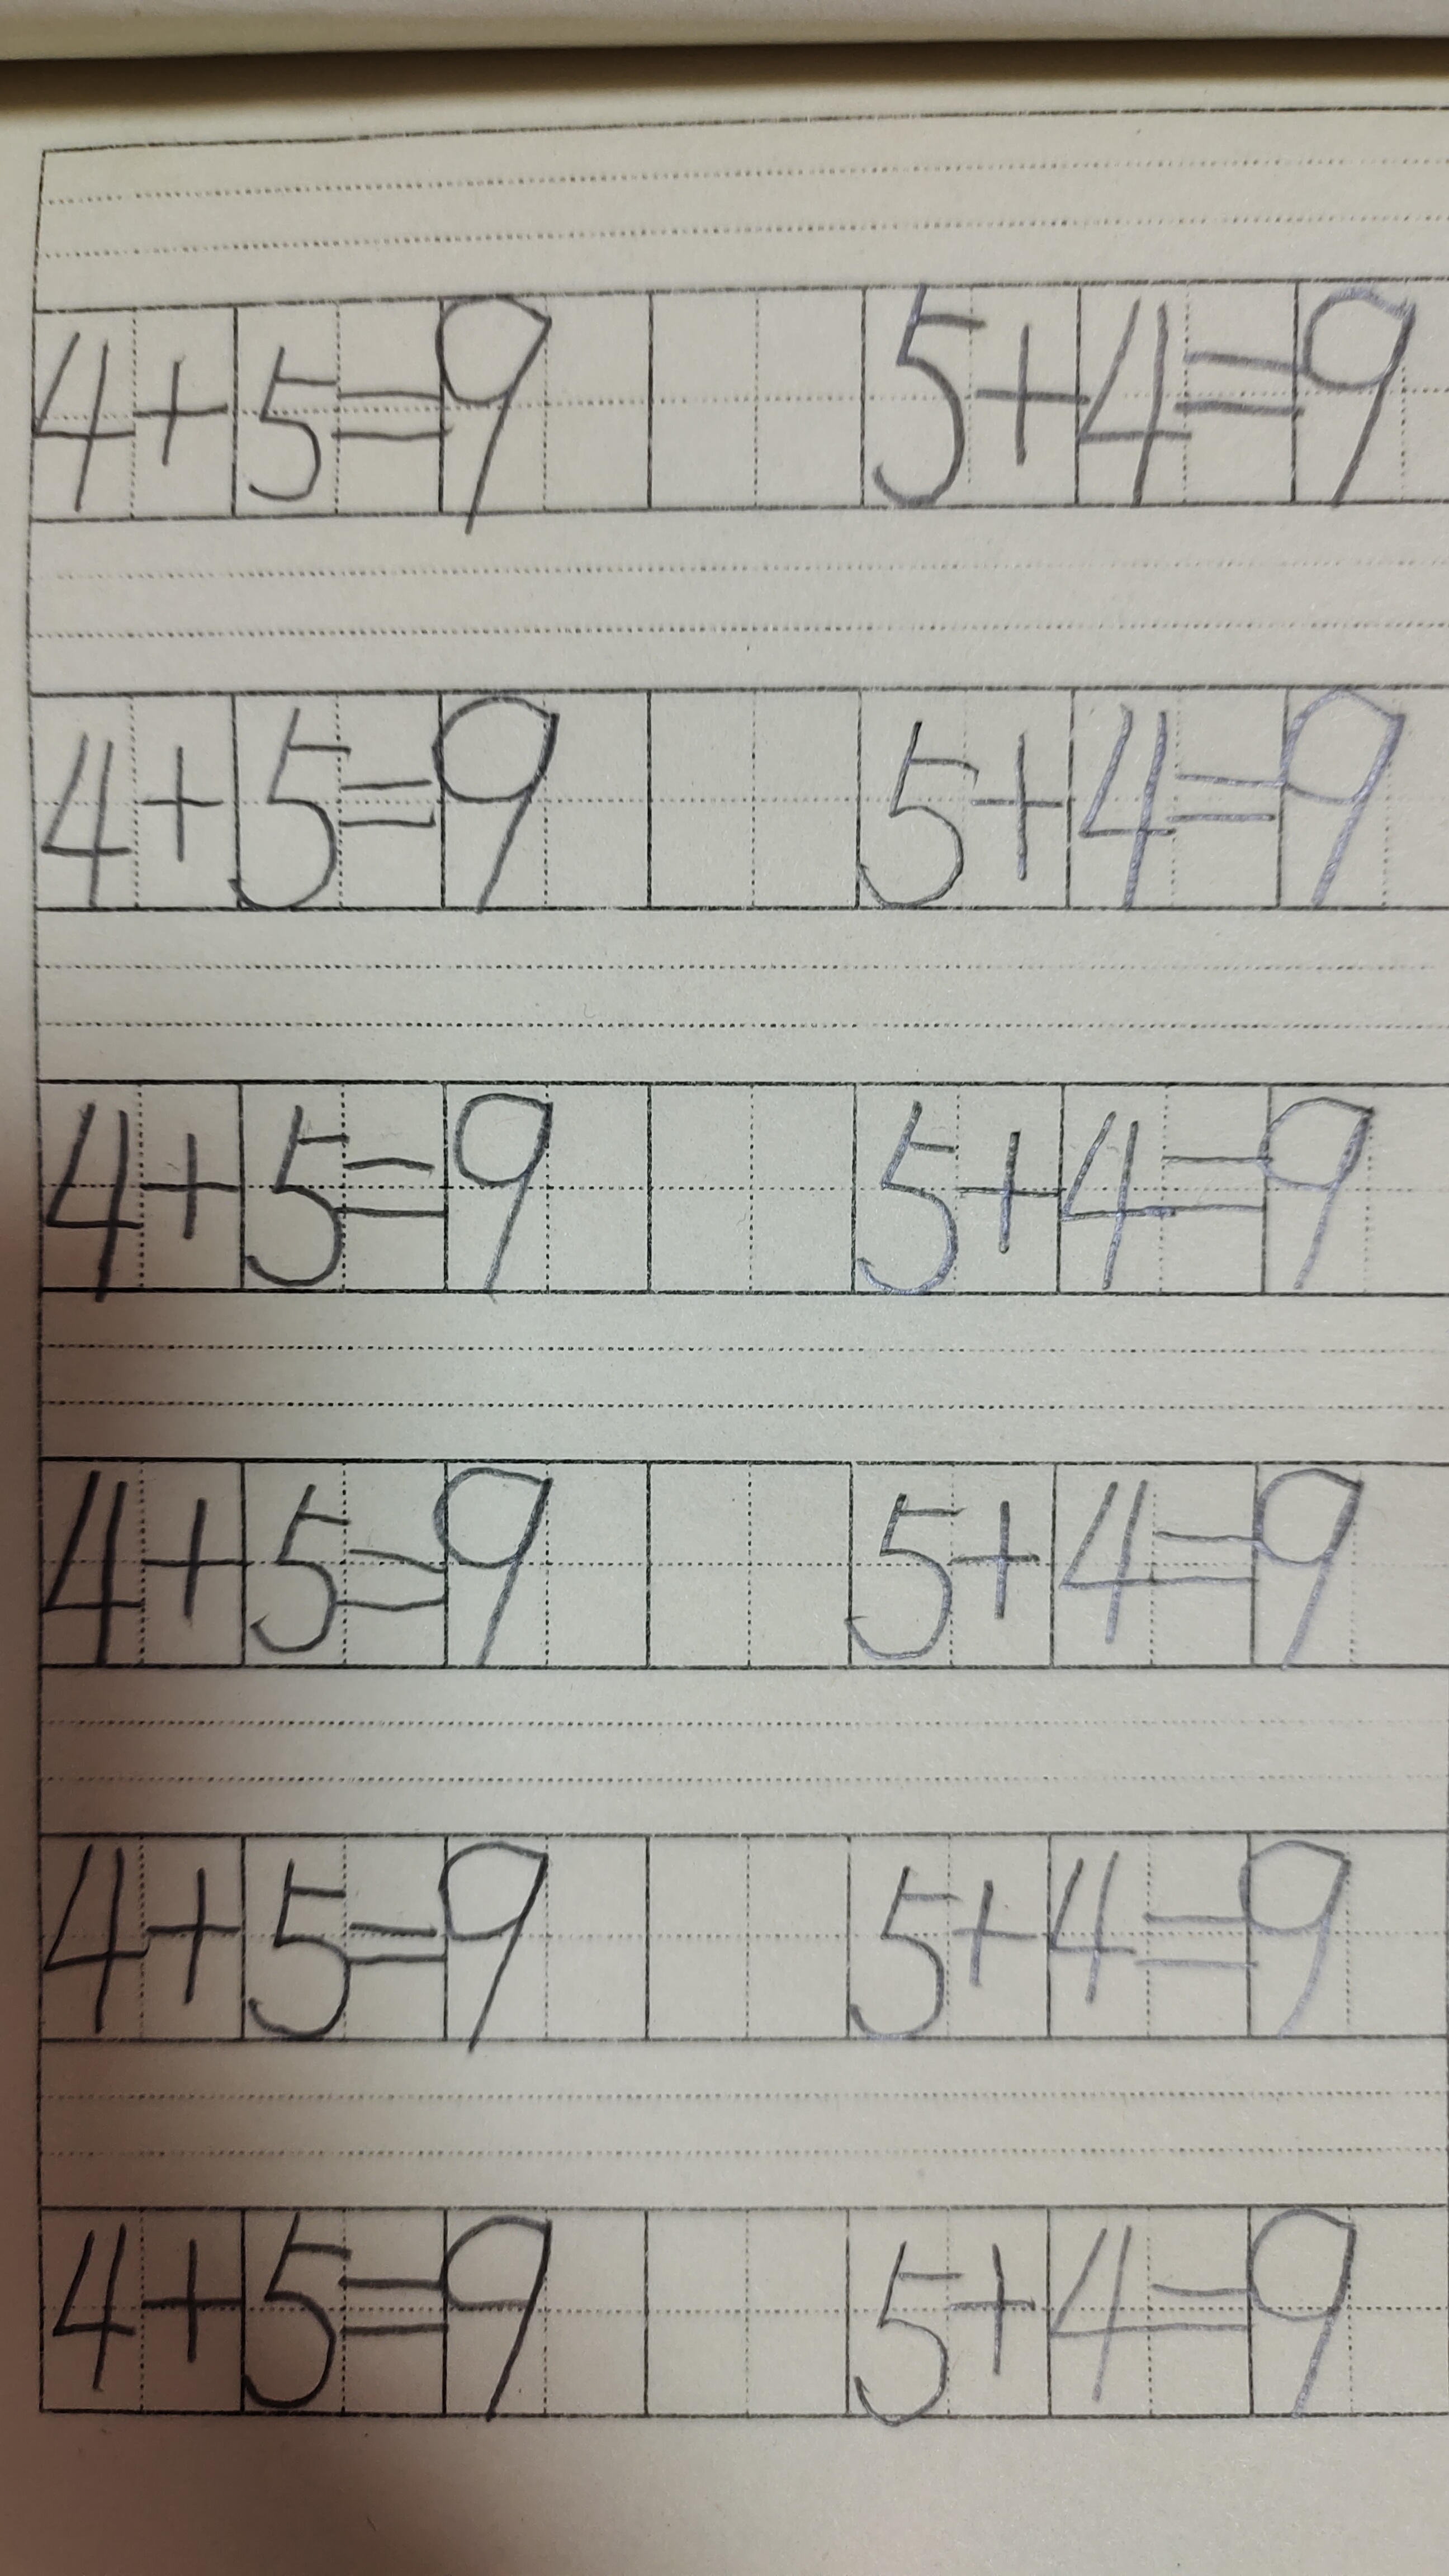 4+5=9 5+4=9
4+5=9 5+4=9
4+5=9 5+4=9
4+5=9 5+4=9
4+5=9 5+4=9
4+5=9 5+4=9